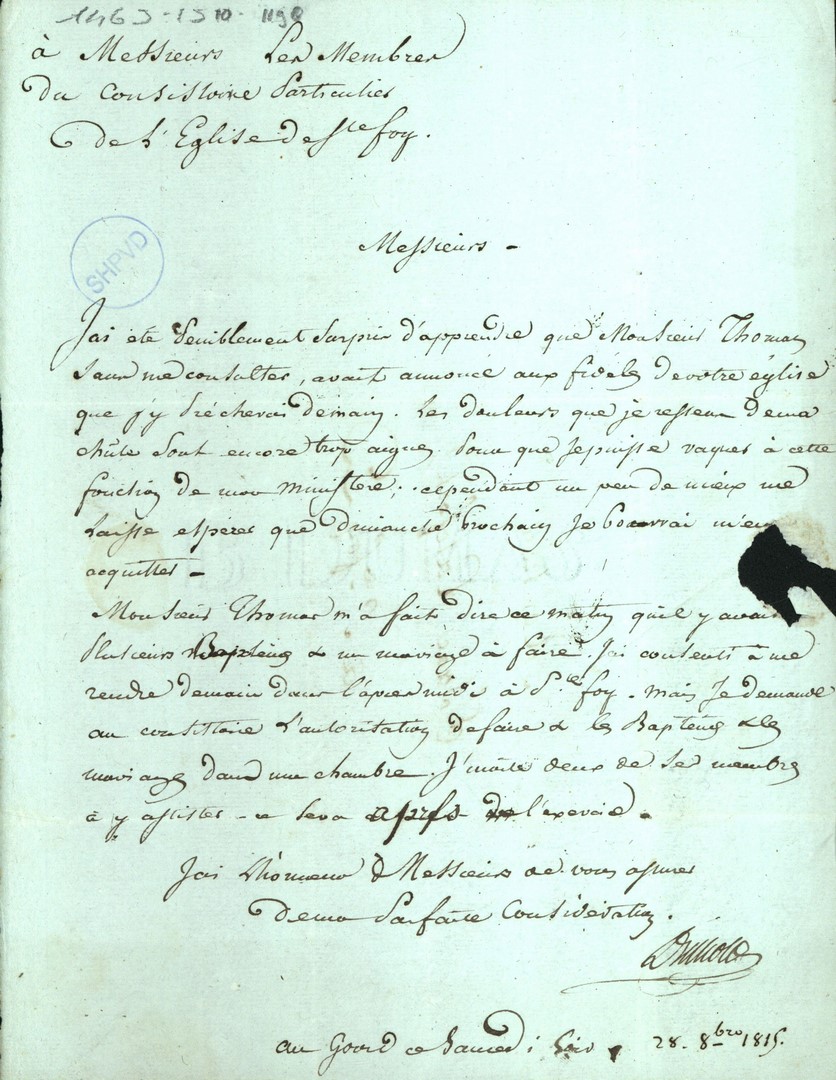 1463-1510-1190
à Messieurs Les Membres
du Consistoire Particulier
de L'Eglise de Ste foy.
SHPVD
Messieurs -
J'ai eté Peniblement Surpris d'apprendre que Monsieur Thomas
Sans me consulter, avait annoncé aux fidèles de votre église
que j'y Prêcherai demain. Les douleurs que je ressens de ma
chûte Sont encore trop aigues Pour que Je puisse vaquer à cette
fonction de mon ministère; cependant un peu de mieux me
Laisse espérer que dimanche Prochain Je Pourrai m'en
acquitter -
Monsieur Thomas m'a fait dire ce matin qu'il y avait
Plusieurs Baptêmes & un mariage à faire. J'ai consenti à me
rendre demain dans l'après midi à Ste foy. mais Je demande
au consistoire L'autorisation de faire & les Baptêmes & le
mariage dans une chambre. J'invite deux de Ses membres
à y assister - ce Sera après l'exercice.
J'ai L'honneur Messieurs de vous assurer
de ma Parfaite Considération.
au Gourd ce Samedi Soir 28. 8bre 1815.